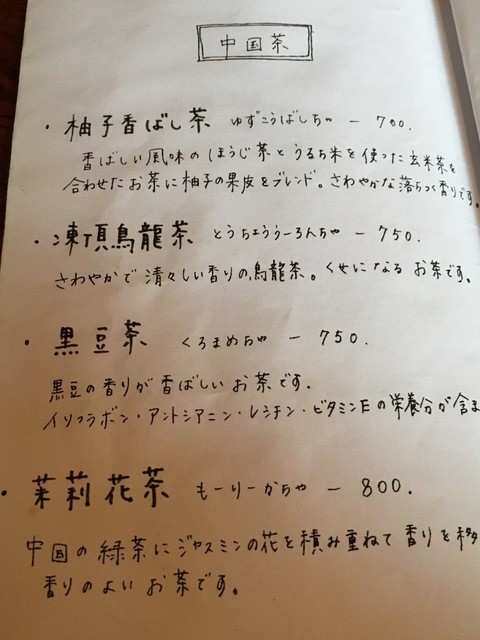 中国茶
・柚子香ばし茶 ゆずこうばしちゃ ー 700.
香ばしい風味のほうじ茶とうるち米を使った玄米茶を
合わせたお茶に柚子の果皮をブレンド。さわやかな落ちつく香りです。
・凍頂烏龍茶 とうちょううーろんちゃ ー 750.
さわやかで清々しい香りの烏龍茶。くせになるお茶です。
・黒豆茶 くろまめちゃ ー 750.
黒豆の香りが香ばしいお茶です。
イソフラボン・アントシアニン・レシチン・ビタミンEの栄養分が含ま
・茉莉花茶 もーりーかちゃ ー 800.
中国の緑茶にジャスミンの花を積み重ねて香りを移
香りのよいお茶です。